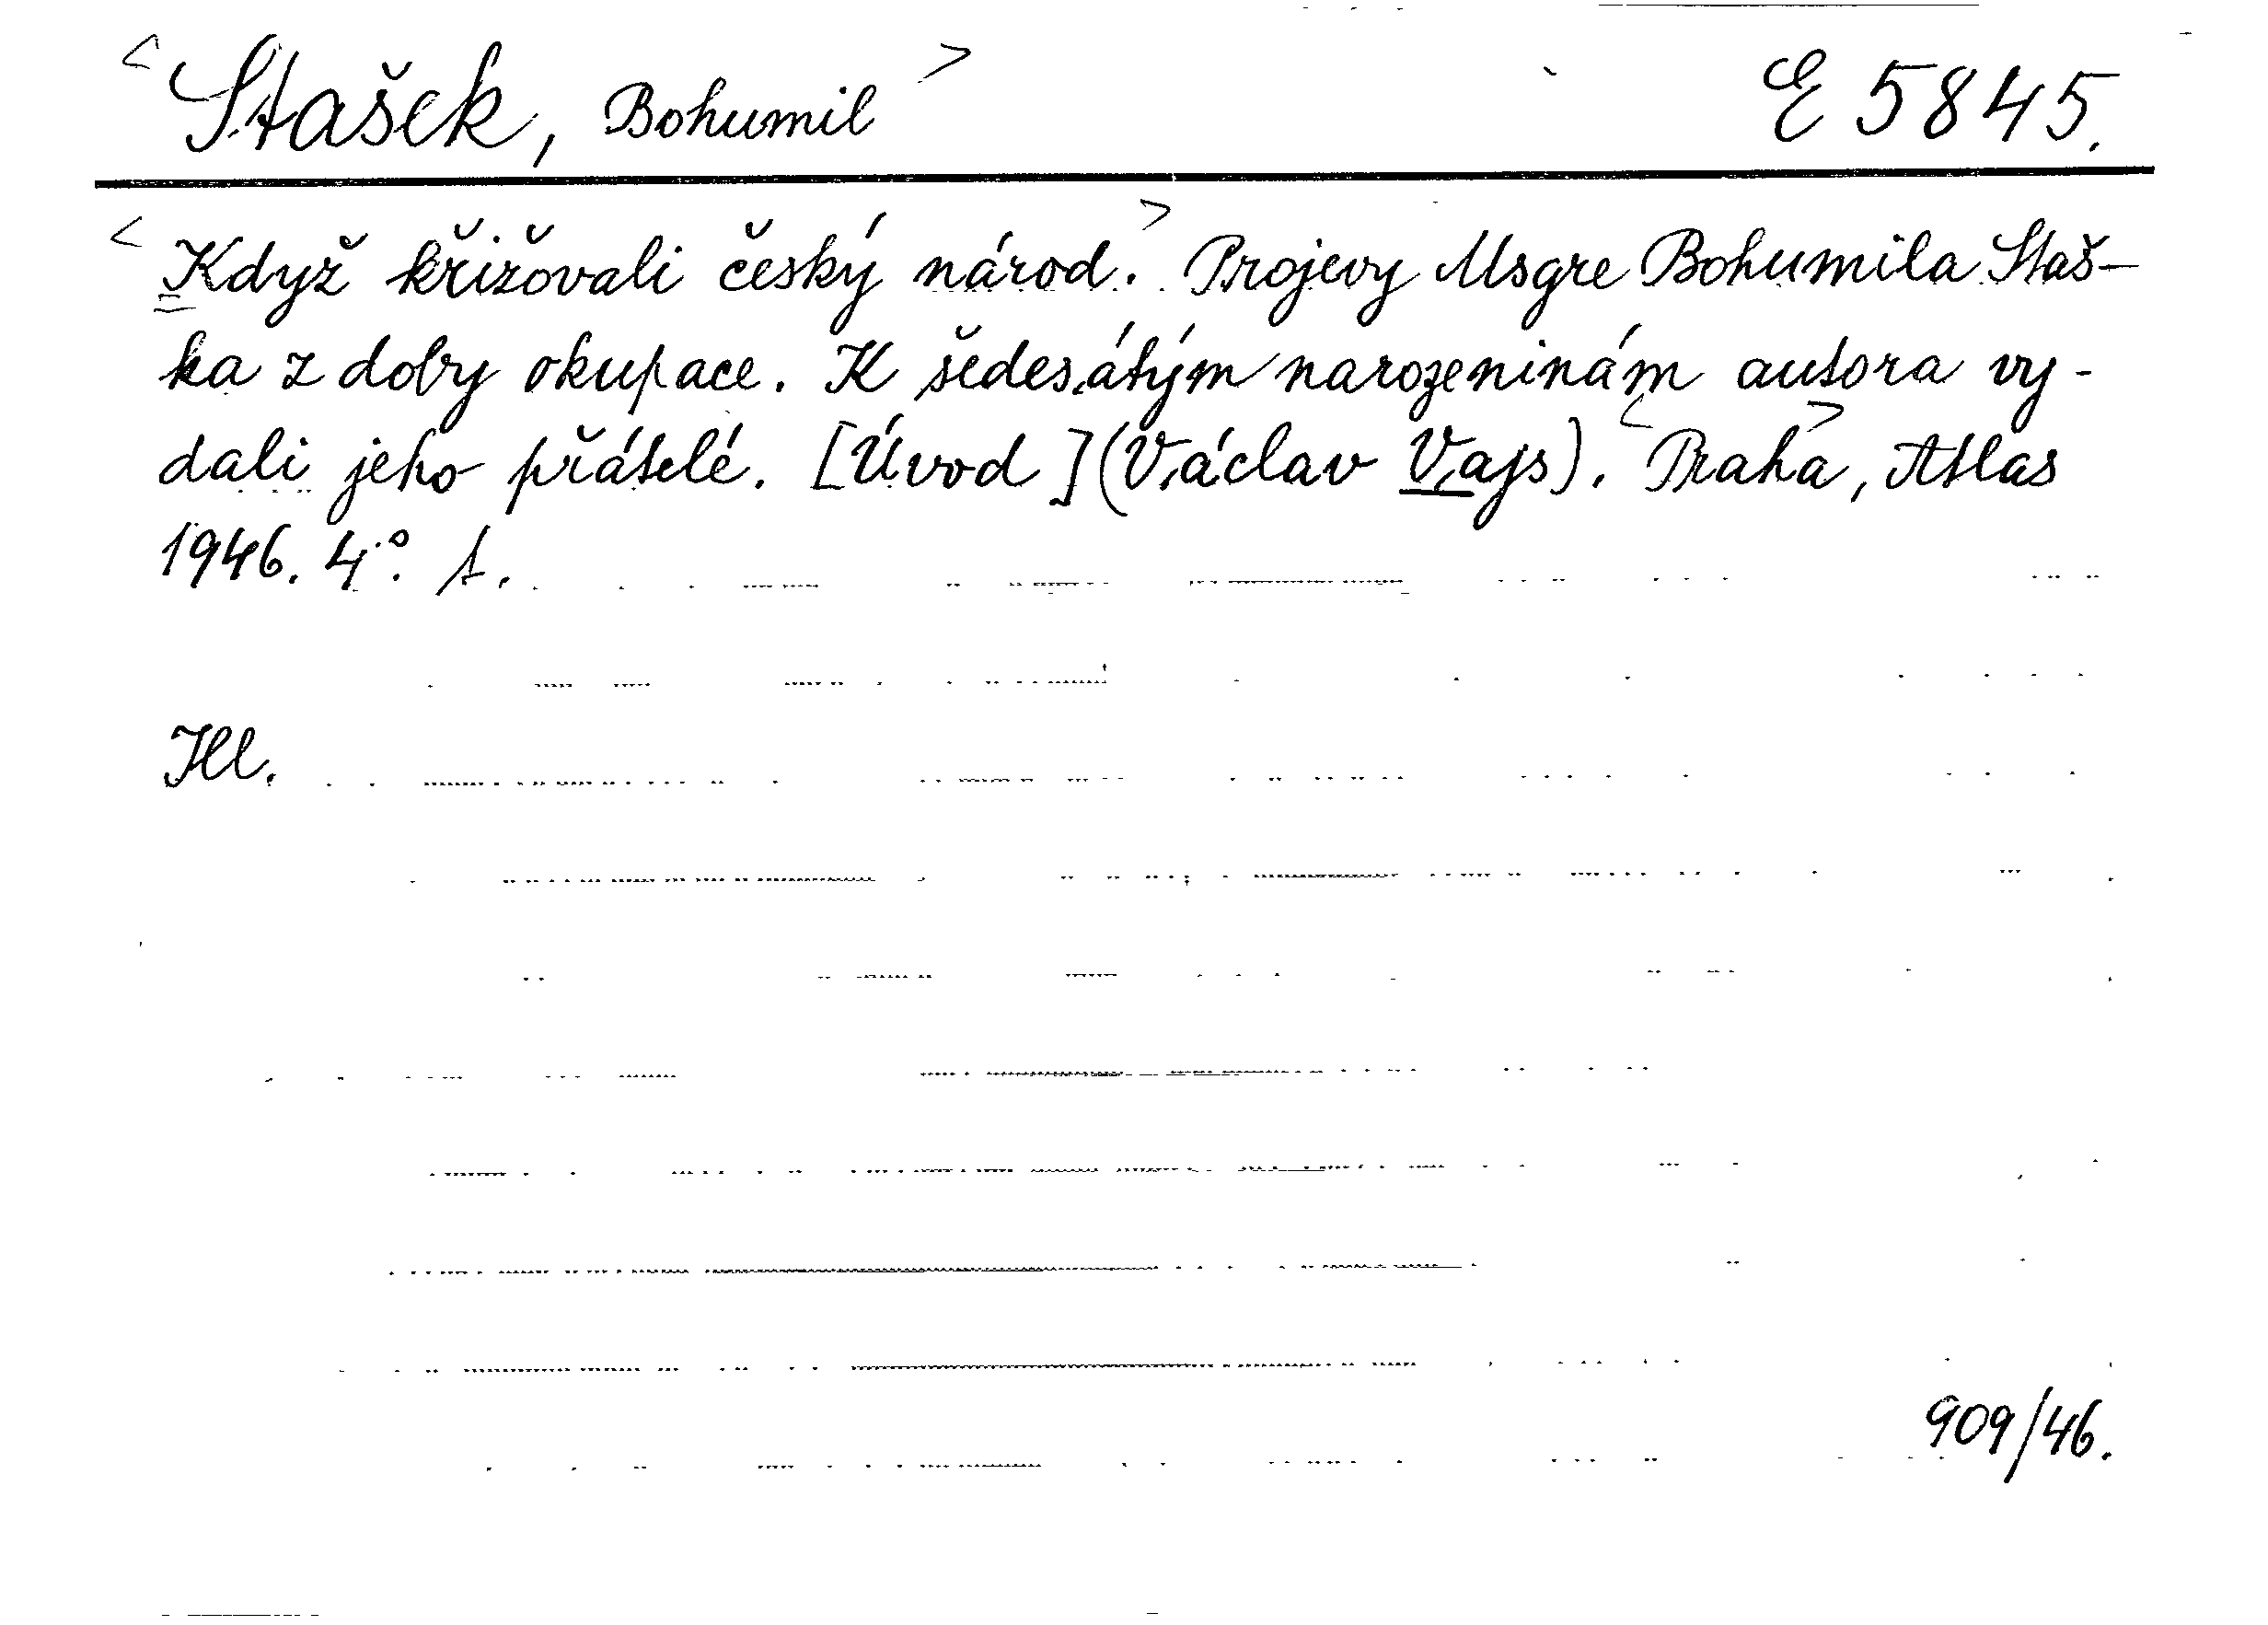 <Stašek, Bohumil> E 5845.
<Když křižovali český národ.> Projevy Msgre Bohumila Staš-
ka z doby okupace. K šedesátým narozeninám autora vy-
dali jeho přátelé. [Úvod] (Václav Vajs). <Praha>, Atlas
1946. 4°. 1.
Ill.
909/46.